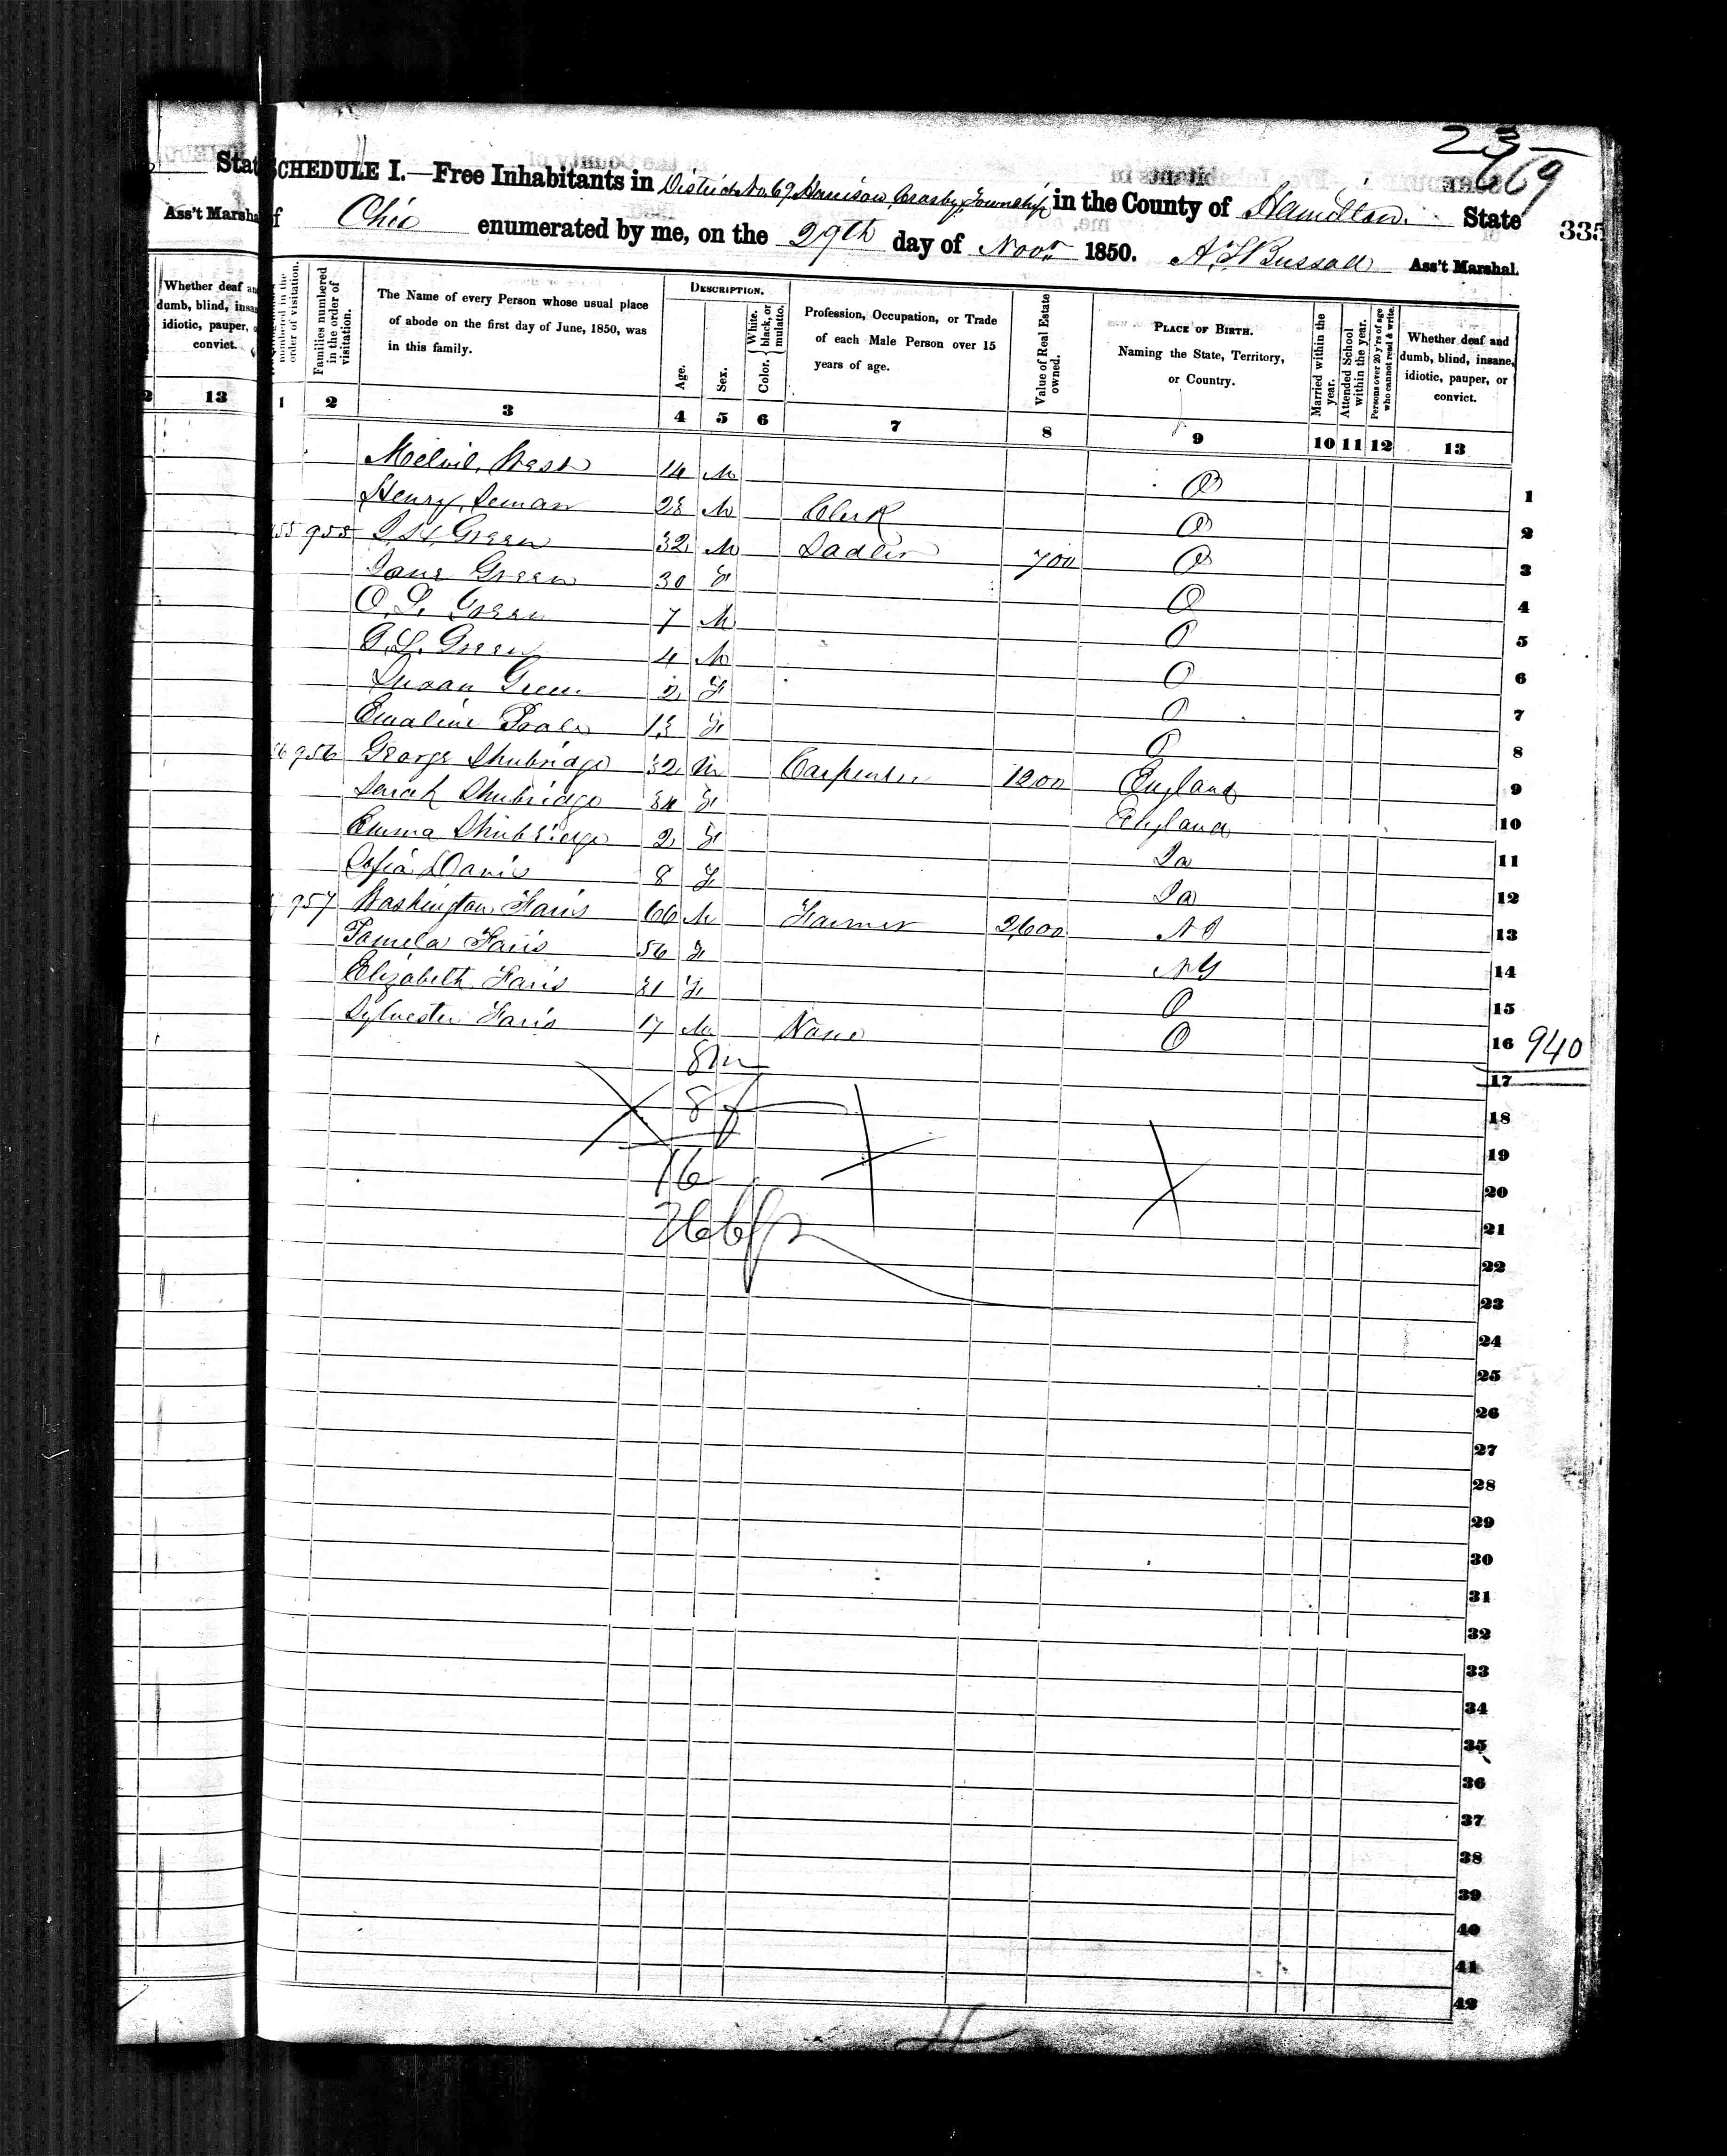 23
669
335
State
Ass't Marshal
SCHEDULE I.—Free Inhabitants in District No. 69 Harrison, Crosby, Township in the County of Hamilton. State
of Ohio enumerated by me, on the 29th day of Novr 1850. Ass't Marshal.
Whether deaf and dumb, blind, insane, idiotic, pauper, or convict.
numbered in the order of visitation.
Families numbered in the order of visitation.
The Name of every Person whose usual place of abode on the first day of June, 1850, was in this family.
DESCRIPTION.
Age.
Sex.
Color. { White, black, or mulatto.
Profession, Occupation, or Trade of each Male Person over 15 years of age.
Value of Real Estate owned.
PLACE OF BIRTH. Naming the State, Territory, or Country.
Married within the year.
Attended School within the year.
Persons over 20 y'rs of age who cannot read & write.
Whether deaf and dumb, blind, insane, idiotic, pauper, or convict.
2 13 1 2 3 4 5 6 7 8 9 10 11 12 13
14 M O 1
Henry 28 M Clerk O 2
55 955 Green 32 M Sadler 700 O 3
Jane Green 30 F O 4
O. L. Green 7 M O 5
Green 4 M O 6
Susan Green 2 F O 7
Emaline 13 F O 8
6 956 George Shubridge 32 M Carpenter 1200 England 9
Sarah Shubridge 34 F England 10
Emma Shubridge 2 F Ia 11
Sofia Davis 8 F Ia 12
957 Washington Faris 66 M Farmer 2600 N J 13
Pamela Faris 56 F N Y 14
Elizabeth Faris 31 F O 15
Sylvester Faris 17 M None O 16 940
8m 17
8f 18
19
16 20
21
22
23
24
25
26
27
28
29
30
31
32
33
34
35
36
37
38
39
40
41
42